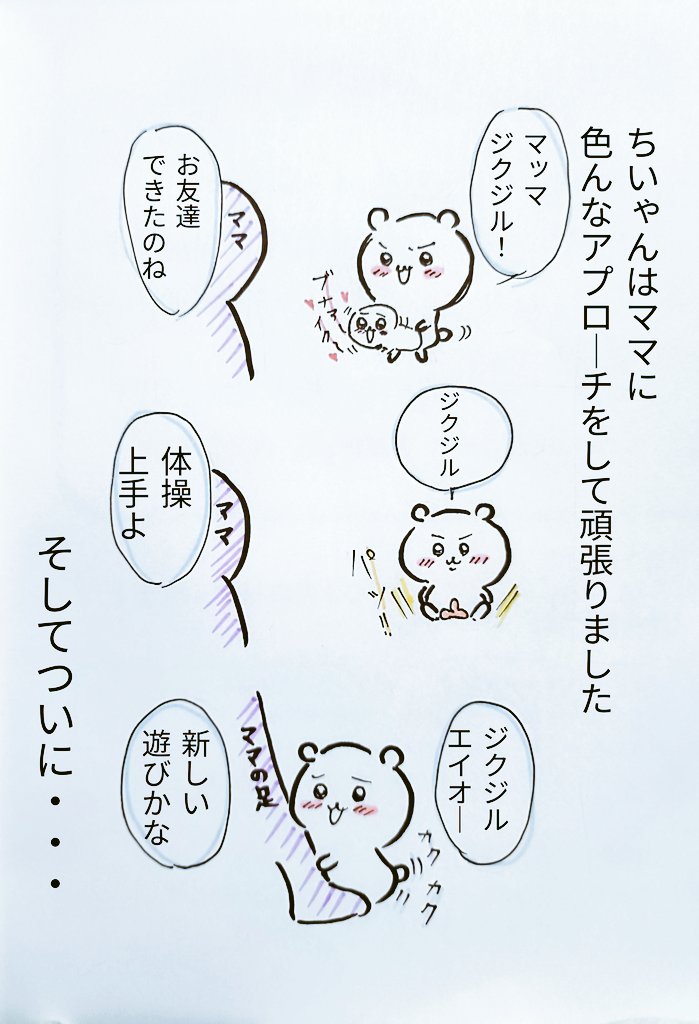 ちいゃんはママに
色んなアプローチをして頑張りました
マッマ
ジクジル!
ママ
お友達
できたのね
ジクジル
ママ
体操
上手よ
ジクジル
エイオー
カクカク
ママの足
新しい
遊びかな
そしてついに・・・